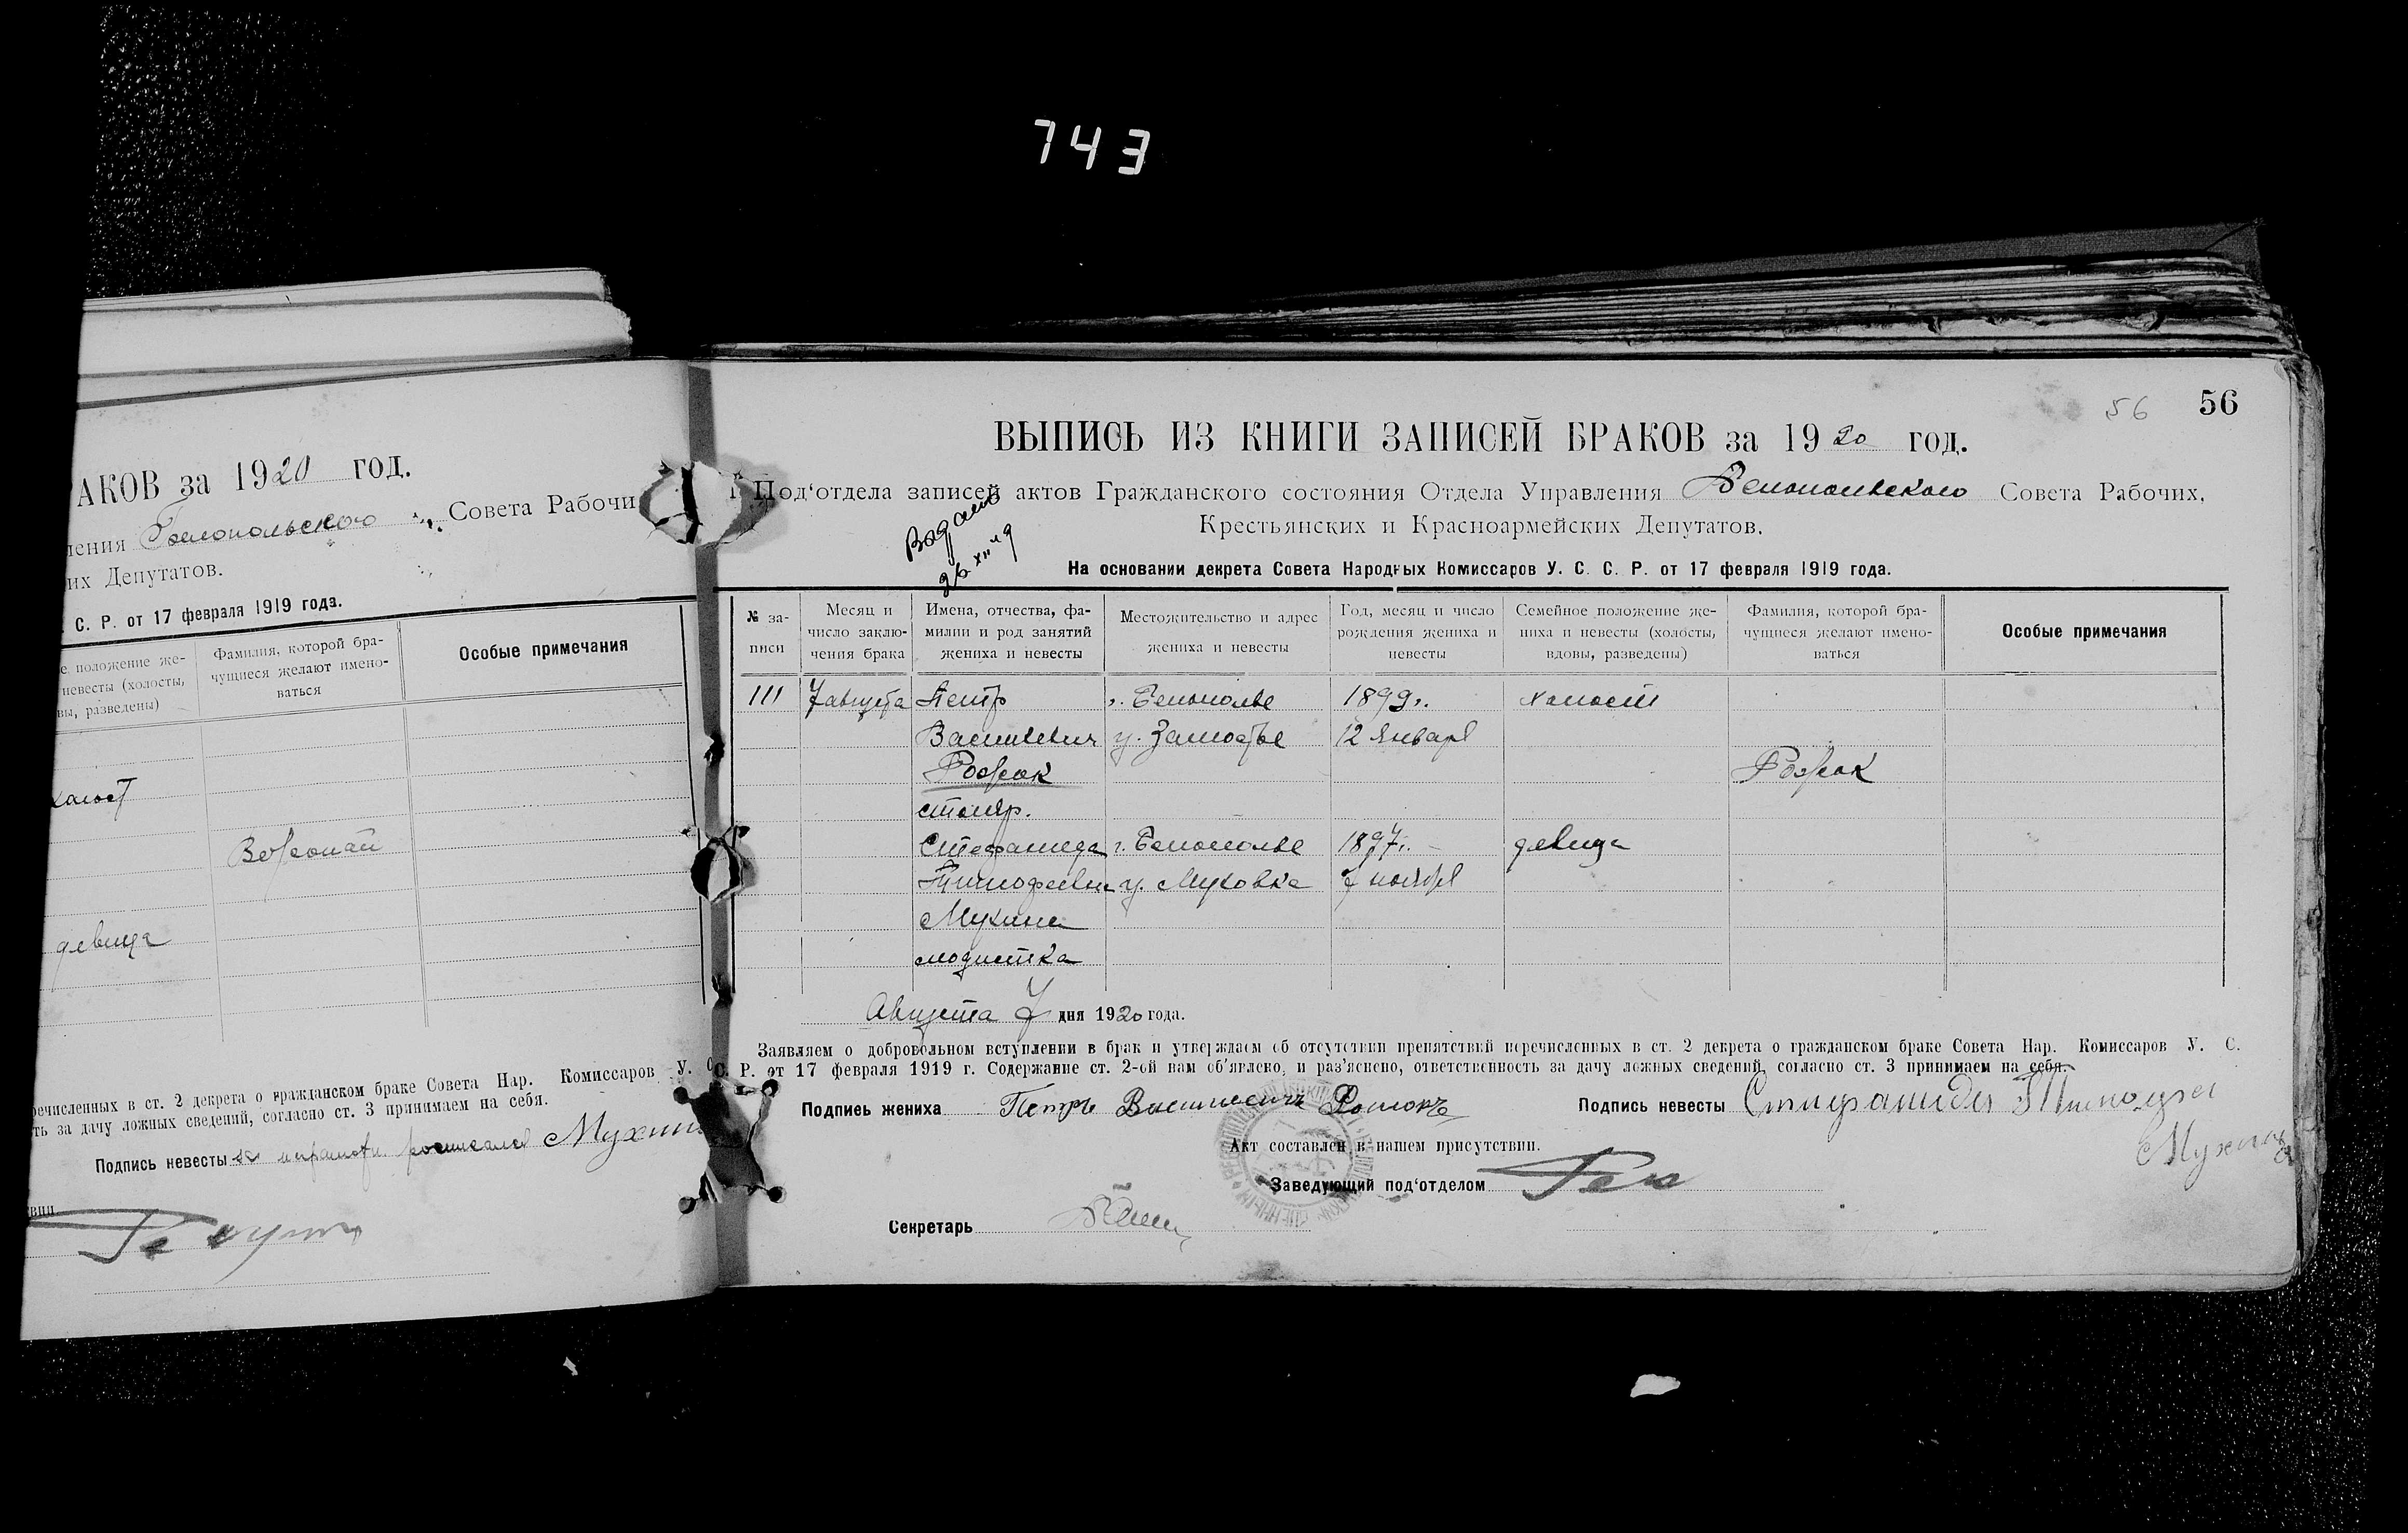 743
АКОВ за 1920 год.
ления Белопольского Совета Рабочи
их Депутатов.
С. Р. от 17 февраля 1919 года.
е положение же-
невесты (холосты,
вы, разведены)
Фамилия, которой бра-
чущиеся желают имено-
ваться
Особые примечания
холост
девица
речисленных в ст. 2 декрета о гражданском браке Совета Нар. Комиссаров У. С.
ть за дачу ложных сведений, согласно ст. 3 принимаем на себя.
Подпись невесты
56
56
ВЫПИСЬ ИЗ КНИГИ ЗАПИСЕЙ БРАКОВ за 1920 год.
Под‘отдела записей актов Гражданского состояния Отдела Управления Белопольского Совета Рабочих,
Крестьянских и Красноармейских Депутатов.
На основании декрета Совета Народных Комиссаров У. С. С. Р. от 17 февраля 1919 года.
№ за-
писи
Месяц и
число заклю-
чения брака
Имена, отчества, фа-
милии и род занятий
жениха и невесты
Местожительство и адрес
жениха и невесты
Год, месяц и число
рождения жениха и
невесты
Семейное положение же-
ниха и невесты (холосты,
вдовы, разведены)
Фамилия, которой бра-
чущиеся желают имено-
ваться
Особые примечания
111 7 августа Петр г. Белополье 1899 г. холост
Васильевич у. Замостье 12 января
Рожок Рожок
столяр.
Стефанида г. Белополье 1897 г. девица
Тимофеевна у. Муховка 7 ноября
Мухина
модистка
Августа 7 дня 1920 года.
Заявляем о добровольном вступлении в брак и утверждаем об отсутствии препятствий перечисленных в ст. 2 декрета о гражданском браке Совета Нар. Комиссаров У. С.
С. Р. от 17 февраля 1919 г. Содержание ст. 2-ой нам об‘явлено, и раз‘яснено, ответственность за дачу ложных сведений, согласно ст. 3 принимаем на себя.
Подпись жениха Петръ Васильевичъ
Подпись невесты
Мухина
Акт составлен в нашем присутствии.
Заведующий под‘отделом
Секретарь